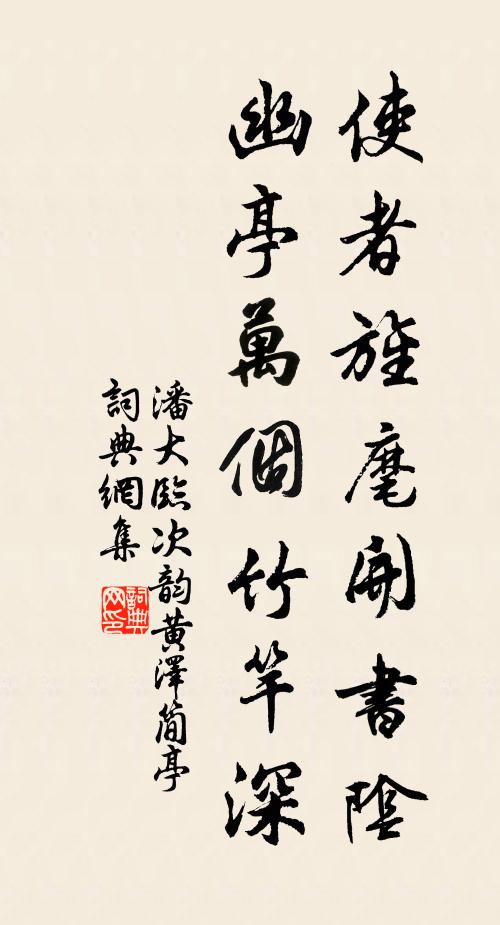 使者旌麾開書陰
幽亭萬個竹竿深
潘大臨次韵黄澤簡亭
詞典網集
詞典网印